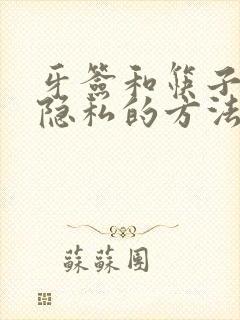 牙签和筷子
隐私的方法
蘇蘇團